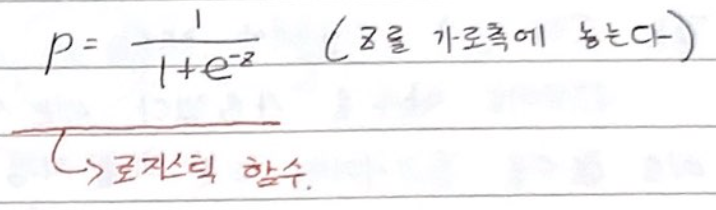 p = 1 / (1 + e^-z) (z를 가로축에 놓는다)
↳ 로지스틱 함수.